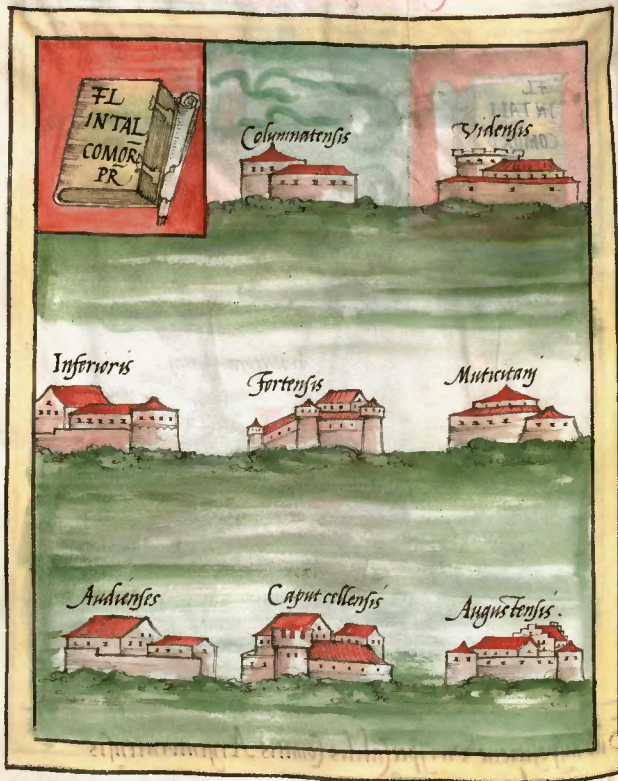 FL
INTAL
COMOR̄
PR̄
Columnatensis
Vidensis
Inferioris
Fortensis
Muticitani
Audienses
Caput cellensis
Augustensis.